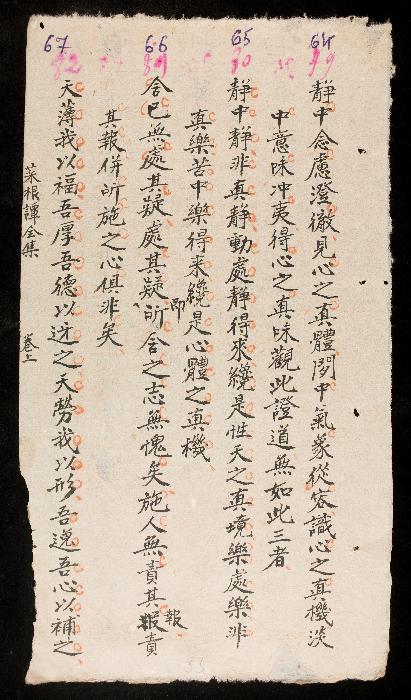 64
靜中念慮澄徹見心之真體閒中氣象從容識心之真機淡
中意味冲夷得心之真味觀此證道無如此三者
65
靜中靜非真靜動處靜得來纔是性天之真境樂處樂非
真樂苦中樂得來纔是心體之真機
66
舍已無處其疑處其疑即所舍之志無愧矣施人無責其報責
報
其報併所施之心俱非矣
67
天薄我以福吾厚吾德以迓之天勞我以形吾逸吾心以補之
菜根譚全集 卷上